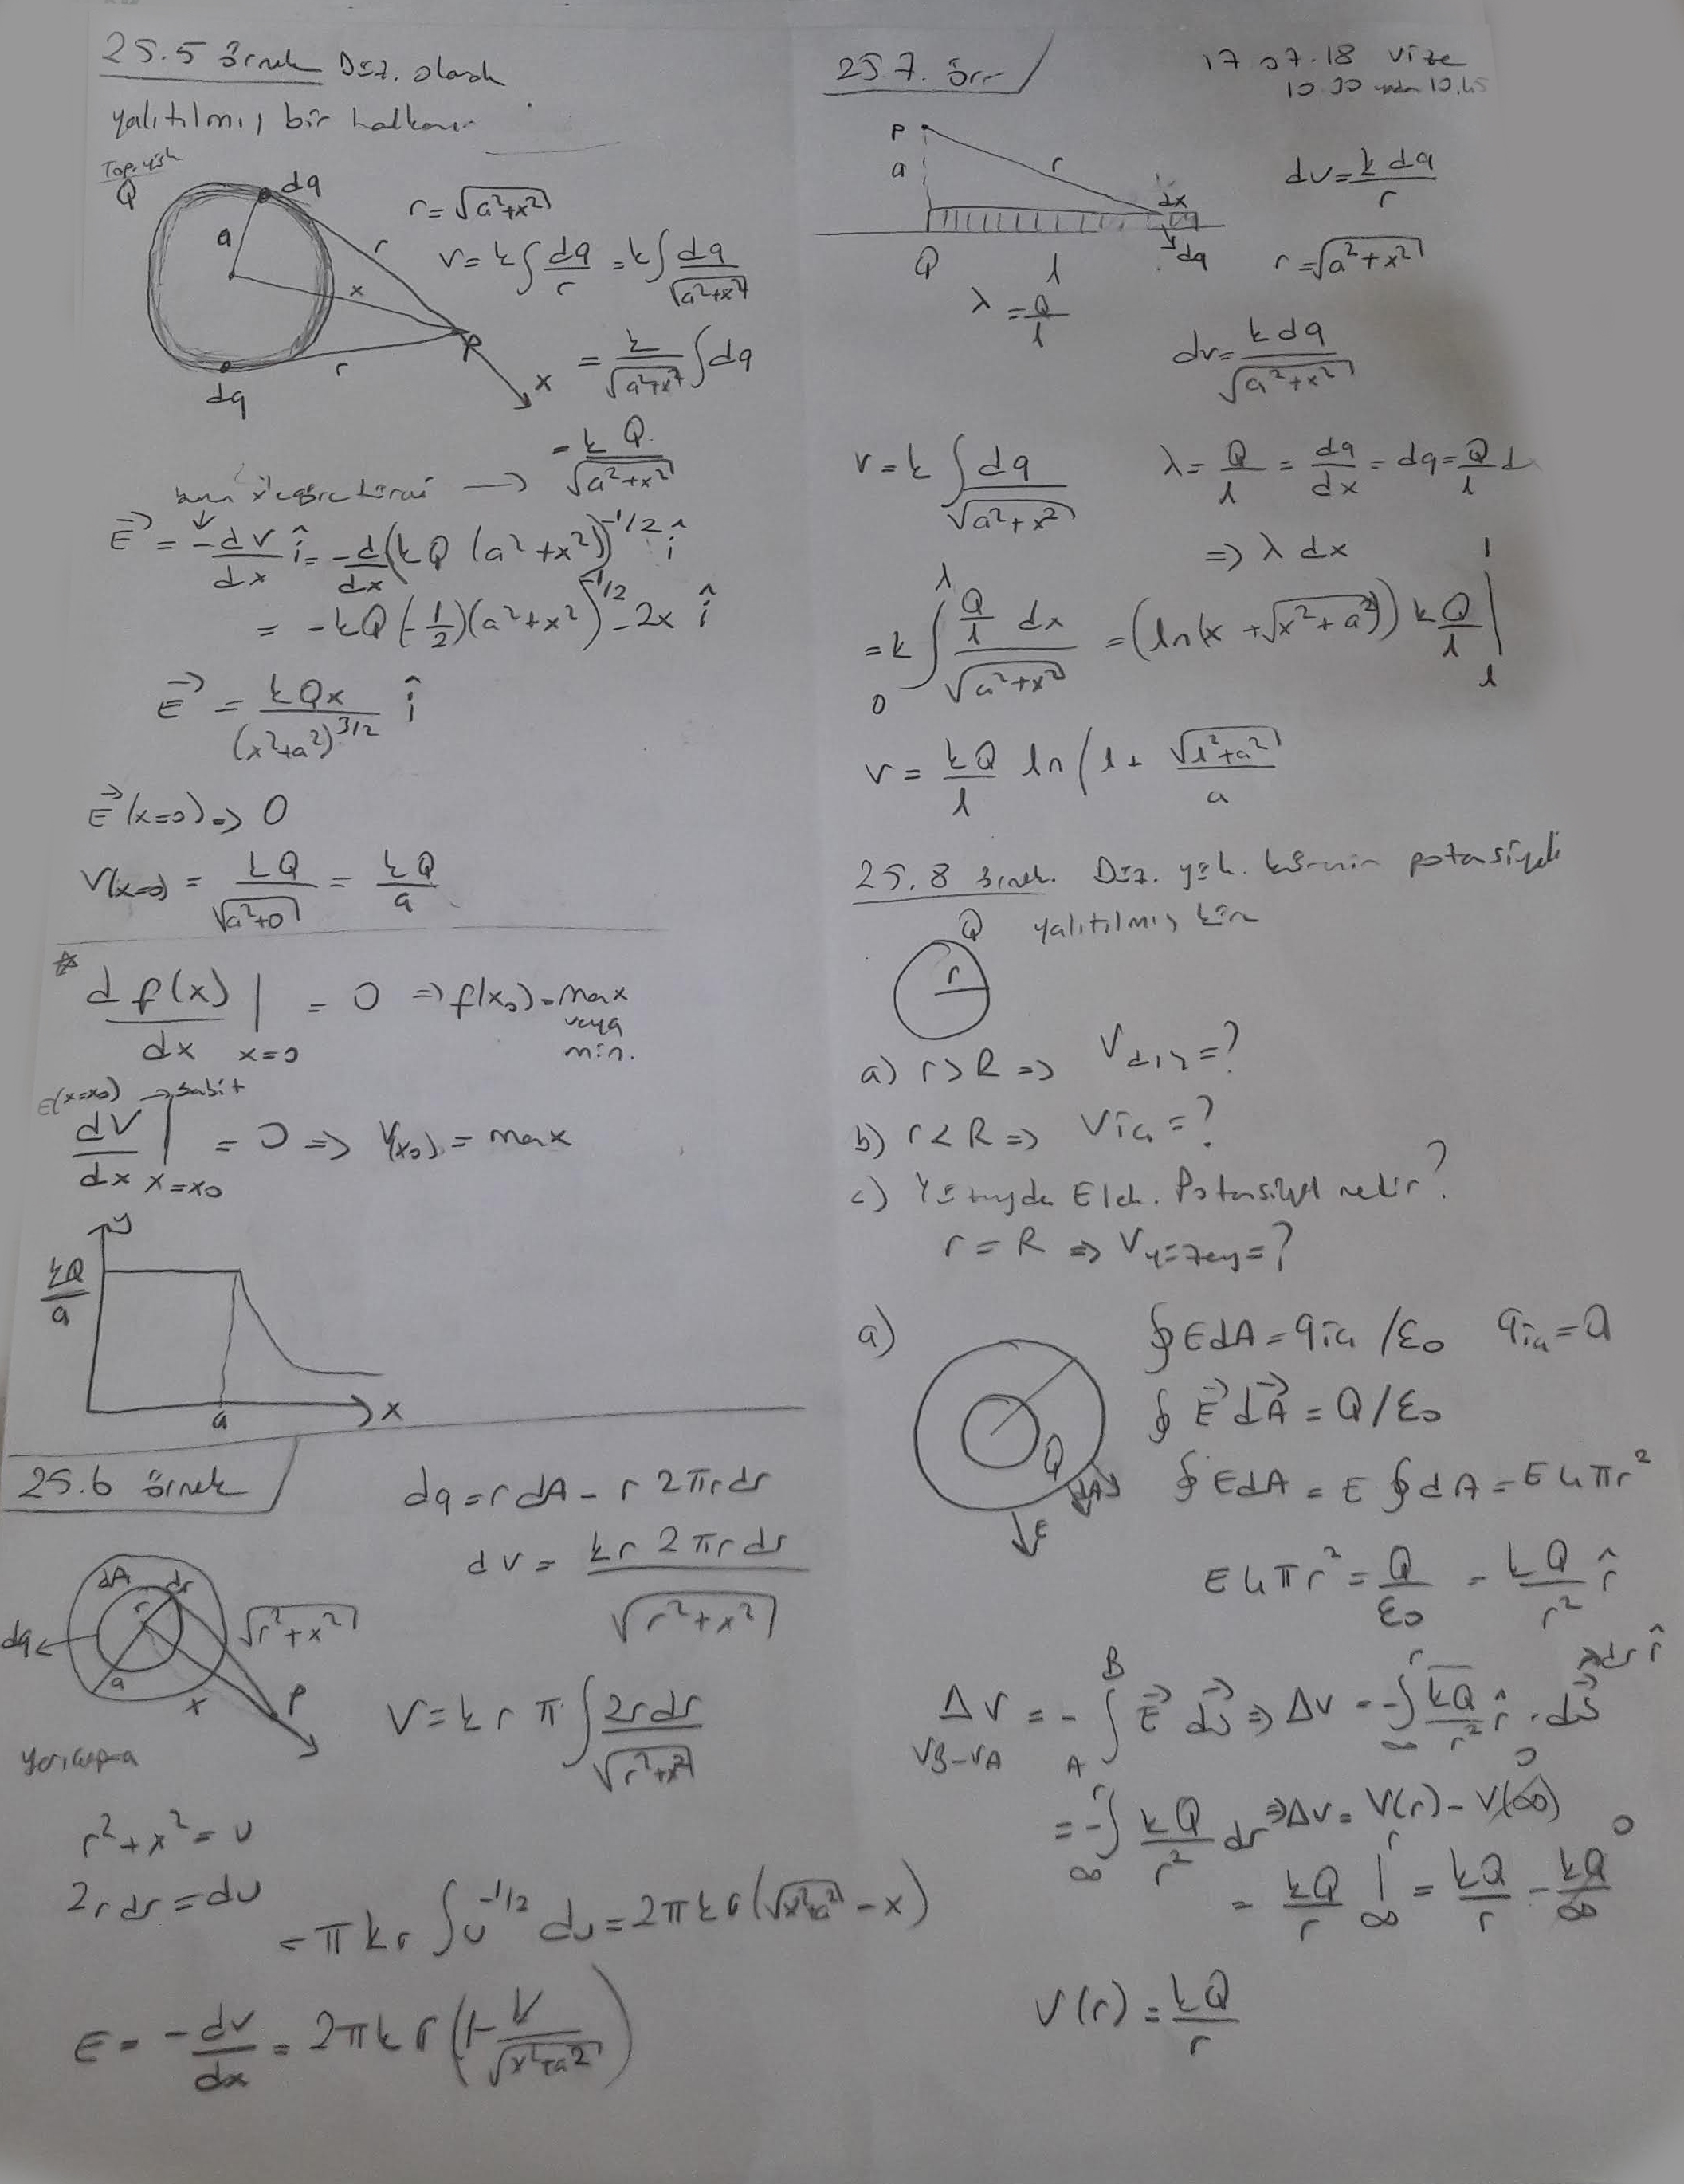 25.5 örnek Düz. olarak
yalıtılmış bir halkanın
Top. yük
Q
dq
a
r
x
P
r
dq
x
r = √(a²+x²)
V = k∫ dq/r = k∫ dq/√(a²+x²)
= k/√(a²+x²) ∫dq
= kQ/√(a²+x²)
E⃗ = -dV/dx î = -d/dx (kQ (a²+x²)^(-1/2)) î
= -kQ (-1/2)(a²+x²)^(-1/2) - 2x î
E⃗ = kQx/(x²+a²)^(3/2) î
E⃗(x=0) => 0
V(x=0) = kQ/√(a²+0) = kQ/a
* df(x)/dx | x=0 = 0 => f(x₀) = max
veya
min.
E(x=x₀) → sabit
dV/dx | x=x₀ = 0 => V(x₀) = max
y
kQ/a
a
x
25.6 örnek
dq = r dA - r 2πr dr
dV = kr 2πr dr/√(r²+x²)
dA dr
r
√(r²+x²)
dq
a
x
P
V = k r π ∫ 2r dr/√(r²+x²)
r²+x² = u
2r dr = du
= πkr ∫ u^(-1/2) du = 2πkσ(√(x²+a²) - x)
E = -dV/dx = 2πkσ (1 -
√(x²+a²))
25 7. örn
17.07.18 Vize
P
a
r
dx
dq
Q l
λ = Q/l
dV = k dq/r
r = √(a²+x²)
dV = k dq/√(a²+x²)
V = k ∫ dq/√(a²+x²)
λ = Q/l = dq/dx = dq = Q/l d
=> λ dx
= k ∫ Q/l dx/√(a²+x²) = (ln(x + √(x²+a²)) kQ/l |
0
V = kQ/l ln(l + √(l²+a²)/a
25.8 örnek. Düz. yük. kürenin potansiyeli
Q yalıtılmış küre
r
a) r > R => V dış = ?
b) r < R => V iç = ?
c) Yüzeyde Elek. Potansiyel nedir?
r = R => V yüzey = ?
a)
Q
dA
E
∮EdA = qiç/ε₀ qiç = Q
∮E⃗ dA⃗ = Q/ε₀
∮EdA = E∮dA = E4πr²
E4πr² = Q/ε₀ = kQ/r² r̂
dr r̂
ΔV = -∫ᴬᴮ E⃗ ds⃗ => ΔV = -∫∞ʳ kQ/r² r̂ . ds⃗
VB-VA
= -∫∞ʳ kQ/r² dr => ΔV = V(r) - V(∞) 0
= kQ/r |∞ʳ = kQ/r - kQ/∞ 0
V(r) = kQ/r